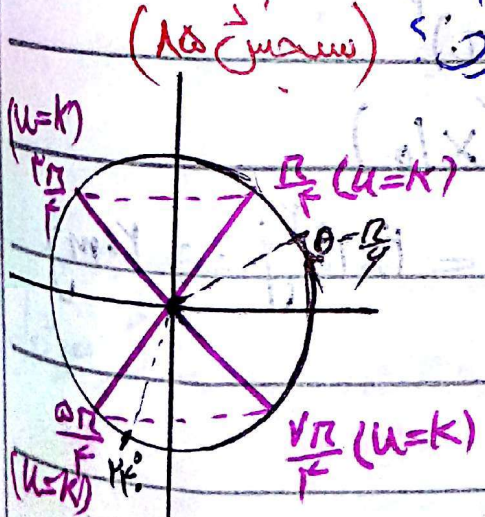 (سنجش ۸۵)
(u=k)
۳π/۴
π/۴ (u=k)
θ=π/۶
۵π/۴
(u=k)
۲۴۰°
۷π/۴ (u=k)